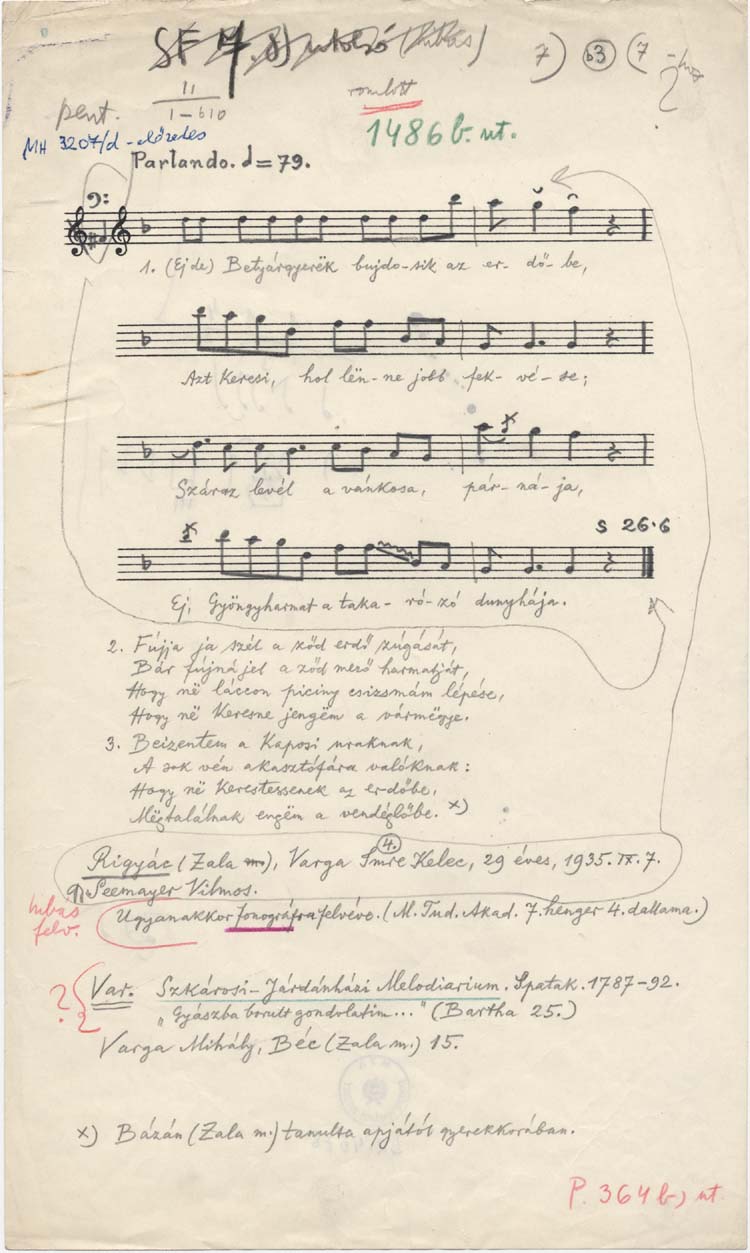 SF
7) b3 (7
pent. II romlott
1-b10
MH 3207/d - előzetes 1486 b. ut.
Parlando. d = 79.
1. (Ej de) Betyárgyerëk bujdo-sik az er- dő- be,
Azt keresi, hol lën-ne jobb fek-vé-se;
Száraz levél a vánkosa, pár-ná-ja,
S 26.6
Ej, Gyöngyharmat a taka-ró-zó dunyhája.
2. Fújja ja szél a ződ erdő zúgását,
Bár fújná jel a ződ mező harmatját,
Hogy në láccon piciny csizsmám lépése,
Hogy në keresne jengëm a vármëgye.
3. Beizentem a Kaposi uraknak,
A sok vén akasztófára valóknak:
Hogy në kerestessenek az erdőbe,
Mëgtalálnak engëm a vendéglőbe. x)
4.
Rigyác (Zala m.), Varga Imre Kelec, 29 éves, 1935. IX. 7.
Seemayer Vilmos.
hibás felv.
Ugyanakkor fonográfra felvéve. (M. Tud. Akad. 7. henger 4. dallama.)
? Var. Szkárosi-Járdánházi Melodiarium. Spatak. 1787-92.
"Gyászba borult gondolatim..." (Bartha 25.)
Varga Mihály, Béc (Zala m.) 15.
x) Bázán (Zala m.) tanulta apjától gyerekkorában.
P. 364 b) ut